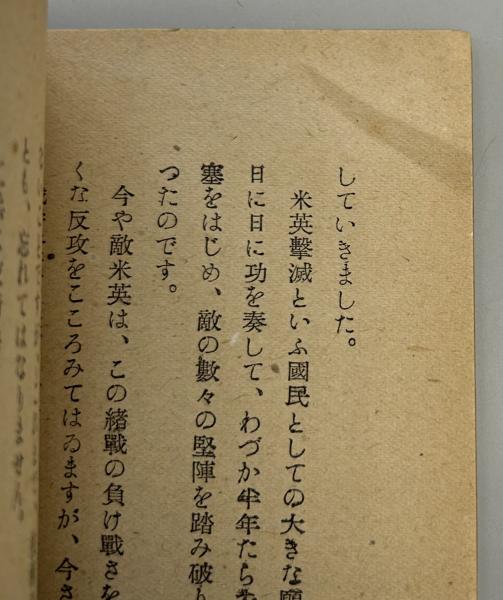 していきました。
米英擊滅といふ國民としての大きな願
日に日に功を奏して、わづか半年たらず
塞をはじめ、敵の數々の堅陣を踏み破り
つたのです。
今や敵米英は、この緖戰の負け戰さを
くな反攻をこころみてはゐますが、今さ
とも、忘れてはなりません。